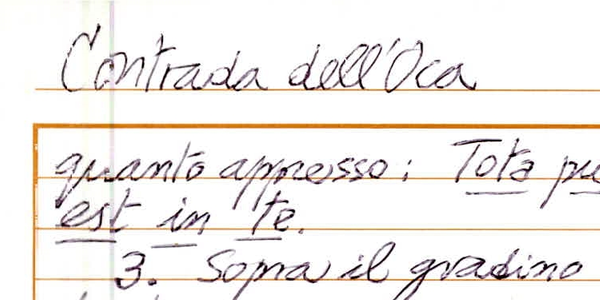 Contrada dell'Oca
quanto appresso: Tota pu
est in te.
3. Sopra il gradino